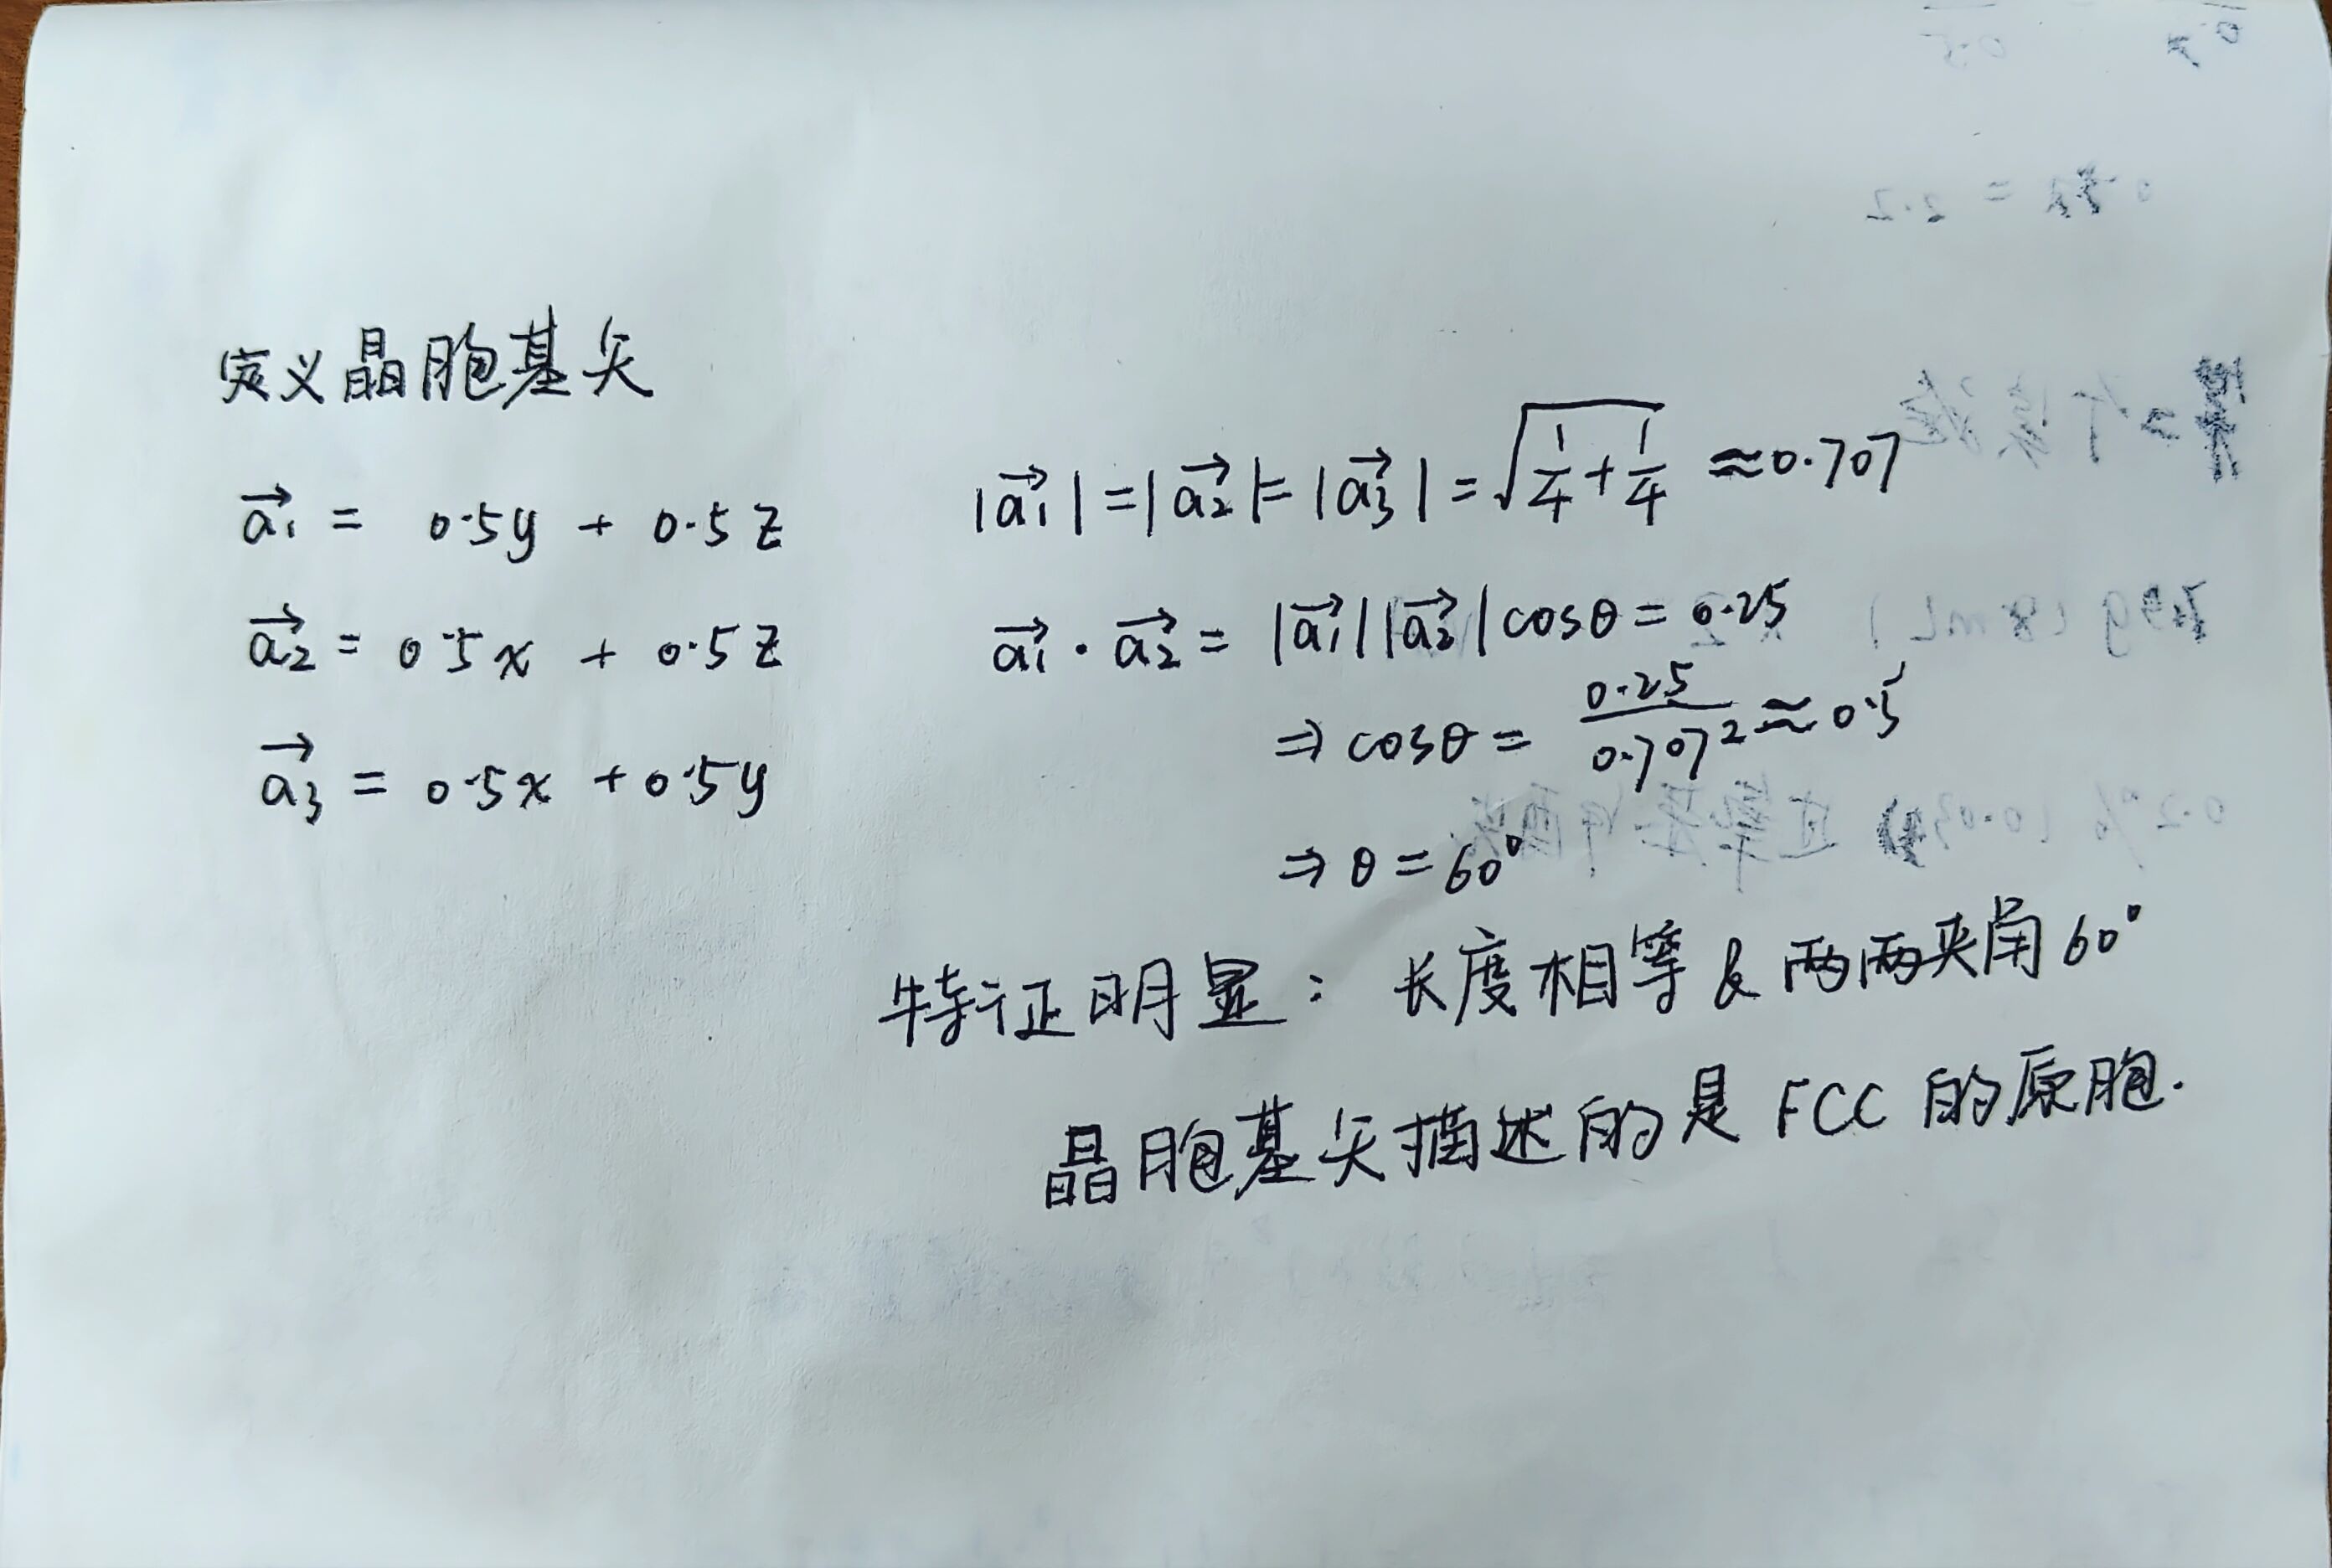 定义晶胞基矢
a₁⃗ = 0.5y + 0.5z
a₂⃗ = 0.5x + 0.5z
a₃⃗ = 0.5x + 0.5y
|a₁⃗| = |a₂⃗| = |a₃⃗| = √(1/4 + 1/4) ≈ 0.707
a₁⃗ · a₂⃗ = |a₁⃗||a₂⃗|cosθ = 0.25
⇒ cosθ = 0.25/0.707² ≈ 0.5
⇒ θ = 60°
特征明显: 长度相等 & 两两夹角60°
晶胞基矢描述的是 FCC 的原胞.